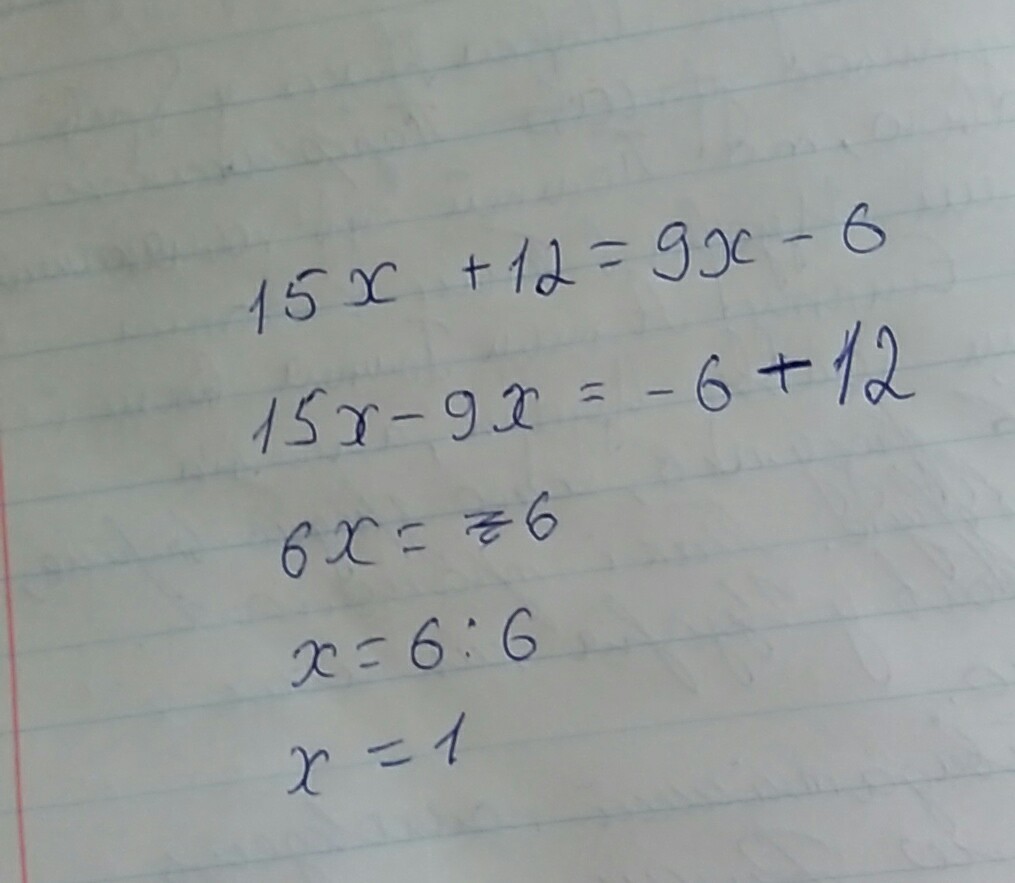 15x + 12 = 9x - 6
15x - 9x = - 6 + 12
6x = 6
x = 6 : 6
x = 1